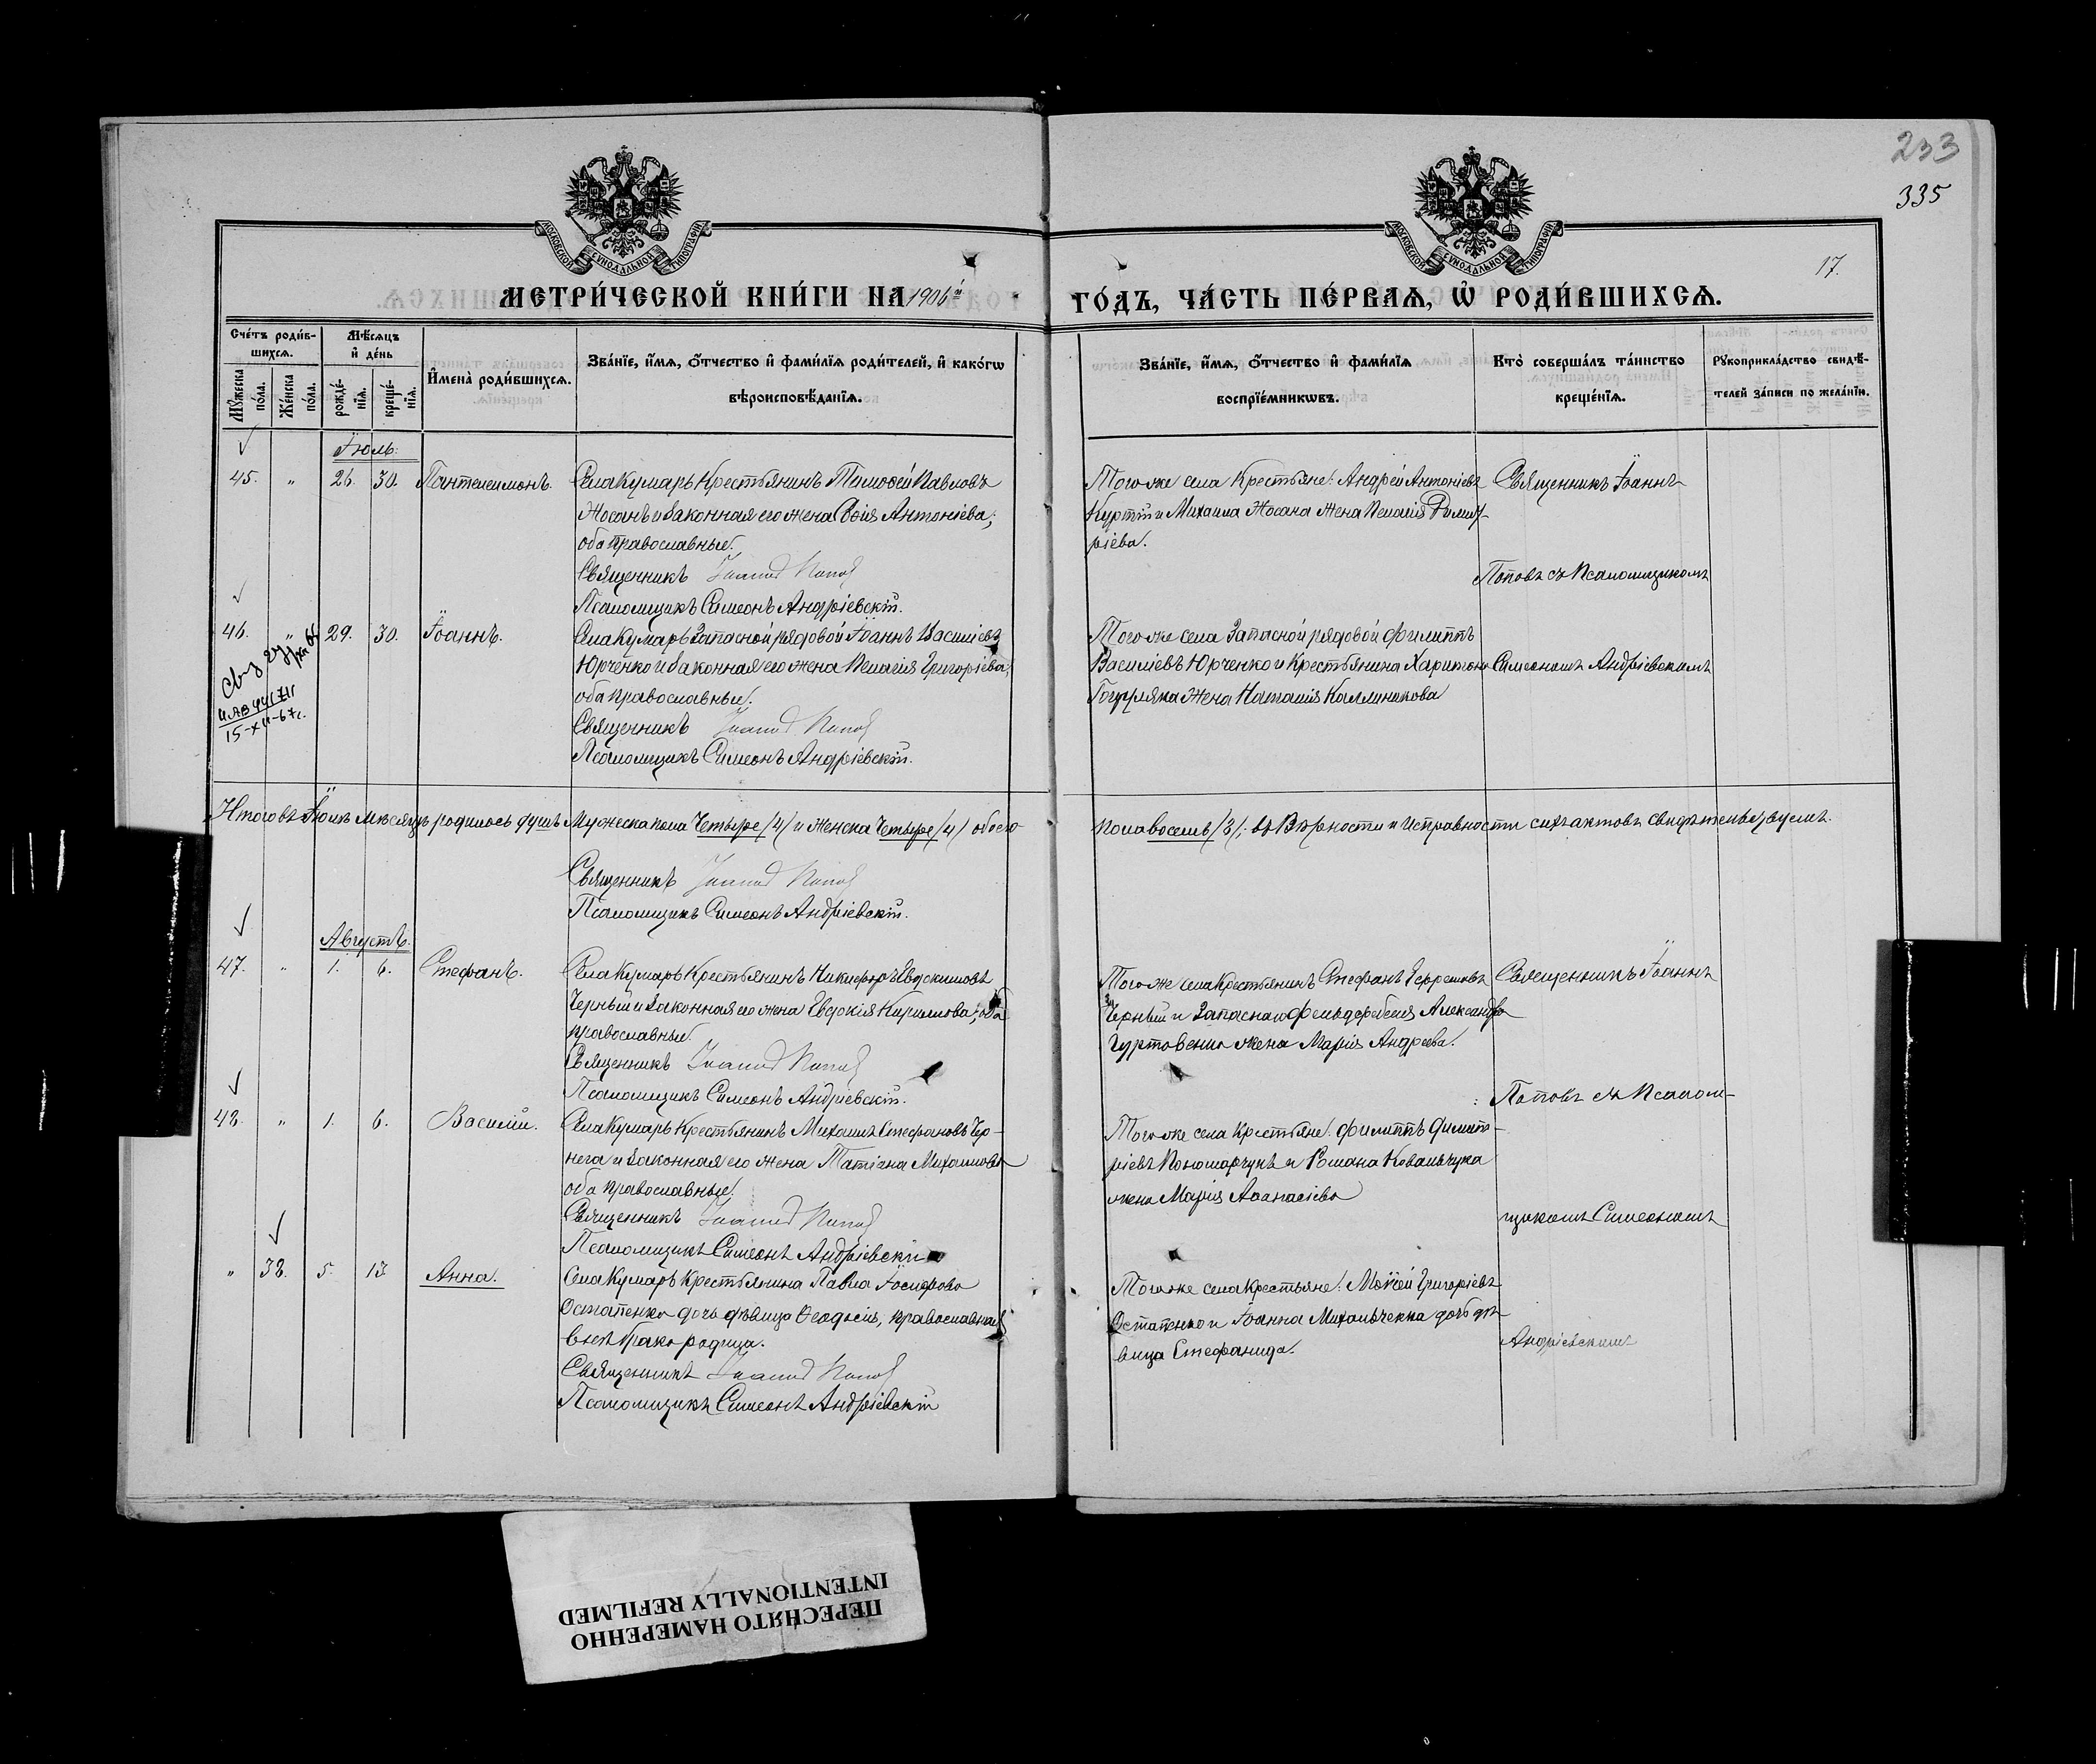 233
335
17.
МОСКОВСКОЙ СѴНОДАЛЬНОЙ ТИПОГРАФІИ
МОСКОВСКОЙ СѴНОДАЛЬНОЙ ТИПОГРАФІИ
МЕТРИ́ЧЕСКОЙ КНИ́ГИ НА 1906й
ГО́ДЪ, ЧА́СТЬ ПЕ́РВАѦ, Ѽ РОДИ́ВШИХСѦ.
Сче́тъ роди́в-
шихсѧ.
Мꙋ́жеска по́ла.
Же́нска по́ла.
Мѣ́сѧцъ
и҆ де́нь
рожде́-
нїѧ.
креще́-
нїѧ.
И҆мена̀ роди́вшихсѧ.
Зва́нїе, и҆́мѧ, ѻ҆́тчество и҆ фами́лїѧ роди́телей, и҆ како́гѡ
вѣроисповѣ́данїѧ.
Зва́нїе, и҆́мѧ, ѻ҆́тчество и҆ фами́лїѧ
воспрїе́мникѡвъ.
Кто̀ соверша́лъ та́инство
креще́нїѧ.
Рꙋкоприкла́дство свидѣ́-
телей за́писи по жела́нїю.
Іюль:
45. " 26. 30. Пантелеимонъ.
Села Кумаръ Крестьянинъ Тимофей Павловъ
Жосанъ и законная его жена Зоія Антоніева;
оба православные.
Священникъ Іоаннъ Поповъ
Псаломщикъ Симеонъ Андріевскій.
Того же села Крестьяне: Андрей Антоніевъ
Куртій и Михаила Жосана жена Пелагія Димит-
ріева.
Священникъ Іоаннъ
Поповъ съ Псаломщикомъ
46. " 29. 30. Іоаннъ.
15-XII-67г.
Села Кумаръ Запасной рядовой Іоаннъ Василіевъ
Юрченко и законная его жена Пелагія Григоріева,
оба православные.
Священникъ Іоаннъ Поповъ
Псаломщикъ Симеонъ Андріевскій.
Того же села Запасной рядовой Филиппъ
Василіевъ Юрченко и Крестьянина Харитона
жена Наталія Каллиникова
Симеономъ Андріевскимъ
Итого въ Іюлѣ мѣсяцѣ родилось душъ Мужеска пола Четыре /4/ и женска Четыре /4/ обоего
пола восемь /8/; въ Вѣрности и Исправности сихъ актовъ свидѣтельствуемъ.
Священникъ Іоаннъ Поповъ
Псаломщикъ Симеонъ Андріевскій.
Августъ.
47. " 1. 6. Стефанъ.
Села Кумаръ Крестьянинъ Никифоръ Евдокимовъ
Черный и законная его жена Евдокія Кириллова, оба
православные.
Священникъ Іоаннъ Поповъ
Псаломщикъ Симеонъ Андріевскій.
Того же села Крестьянинъ Стефанъ Ефремовъ
Черный и Запаснаго фельдфебеля Александра
Гуртовенка жена Марія Андреева.
Священникъ Іоаннъ
Поповъ съ Псалом-
48. " 1. 6. Василій.
Села Кумаръ Крестьянинъ Михаилъ Стефановъ Чер-
нега и законная его жена Татіана Михаилова
оба православные.
Священникъ Іоаннъ Поповъ
Псаломщикъ Симеонъ Андріевскій
Того же села Крестьяне: Филиппъ Димит-
ріевъ Пономарчукъ и Романа Ковальчука
жена Марія Аѳанасіева
щикомъ Симеономъ
" 38. 5. 13. Анна.
Села Кумаръ Крестьянина Павла Іосифова
Остапенка дочь дѣвица Ѳеодосія, православная
внѣ брака родила.
Священникъ Іоаннъ Поповъ
Псаломщикъ Симеонъ Андріевскій
Того же села Крестьяне: Моѵсей Григоріевъ
Остапенко и Іоанна Михальченка дочь дѣ-
вица Стефанида.
Андріевскимъ
ПЕРЕСНЯТО НАМЕРЕННО
INTENTIONALLY REFILMED